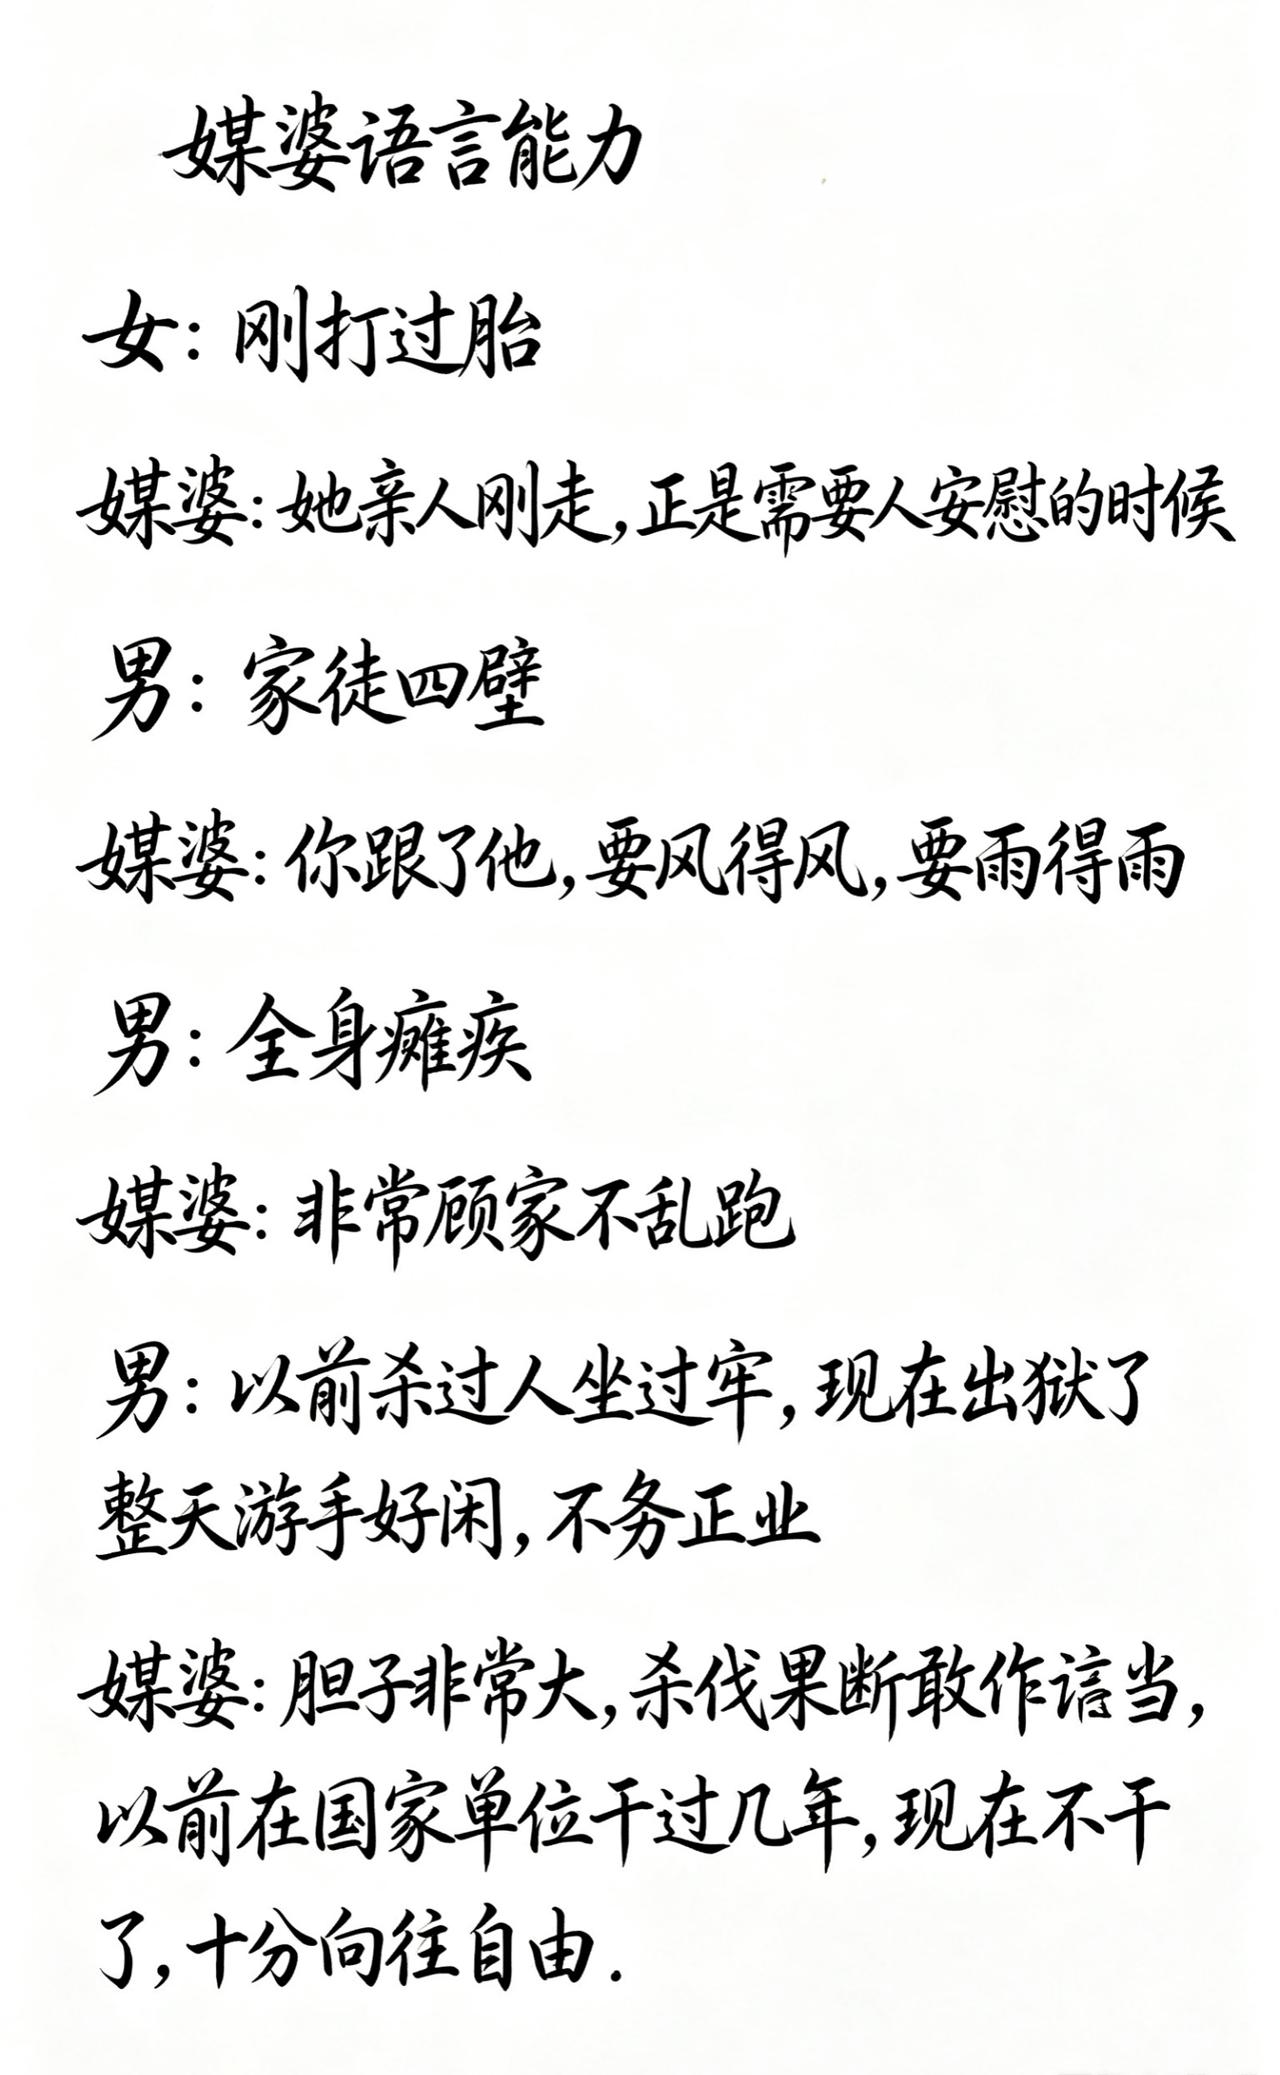 媒婆语言能力
女：刚打过胎
媒婆：她亲人刚走，正是需要人安慰的时候
男：家徒四壁
媒婆：你跟了他，要风得风，要雨得雨
男：全身瘫痪
媒婆：非常顾家不乱跑
男：以前杀过人坐过牢，现在出狱了
整天游手好闲，不务正业
媒婆：胆子非常大，杀伐果断敢作当，
以前在国家单位干过几年，现在不干
了，十分向往自由.